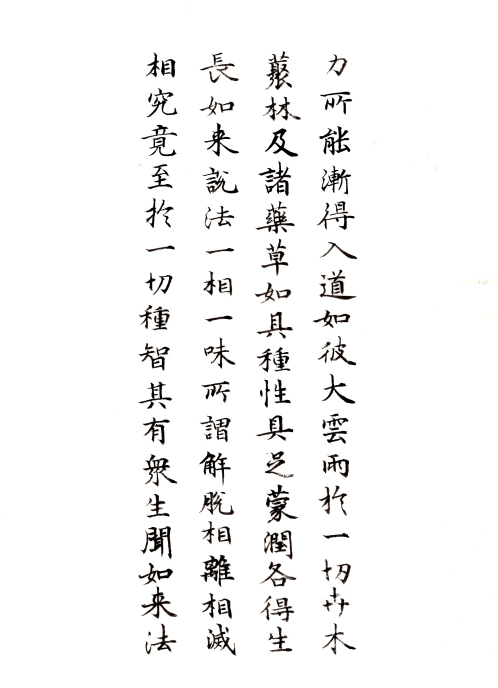 力所能漸得入道如彼大雲雨於一切卉木
藂林及諸藥草如具種性具足蒙潤各得生
長如来說法一相一味所謂解脫相離相滅
相究竟至於一切種智其有衆生聞如来法